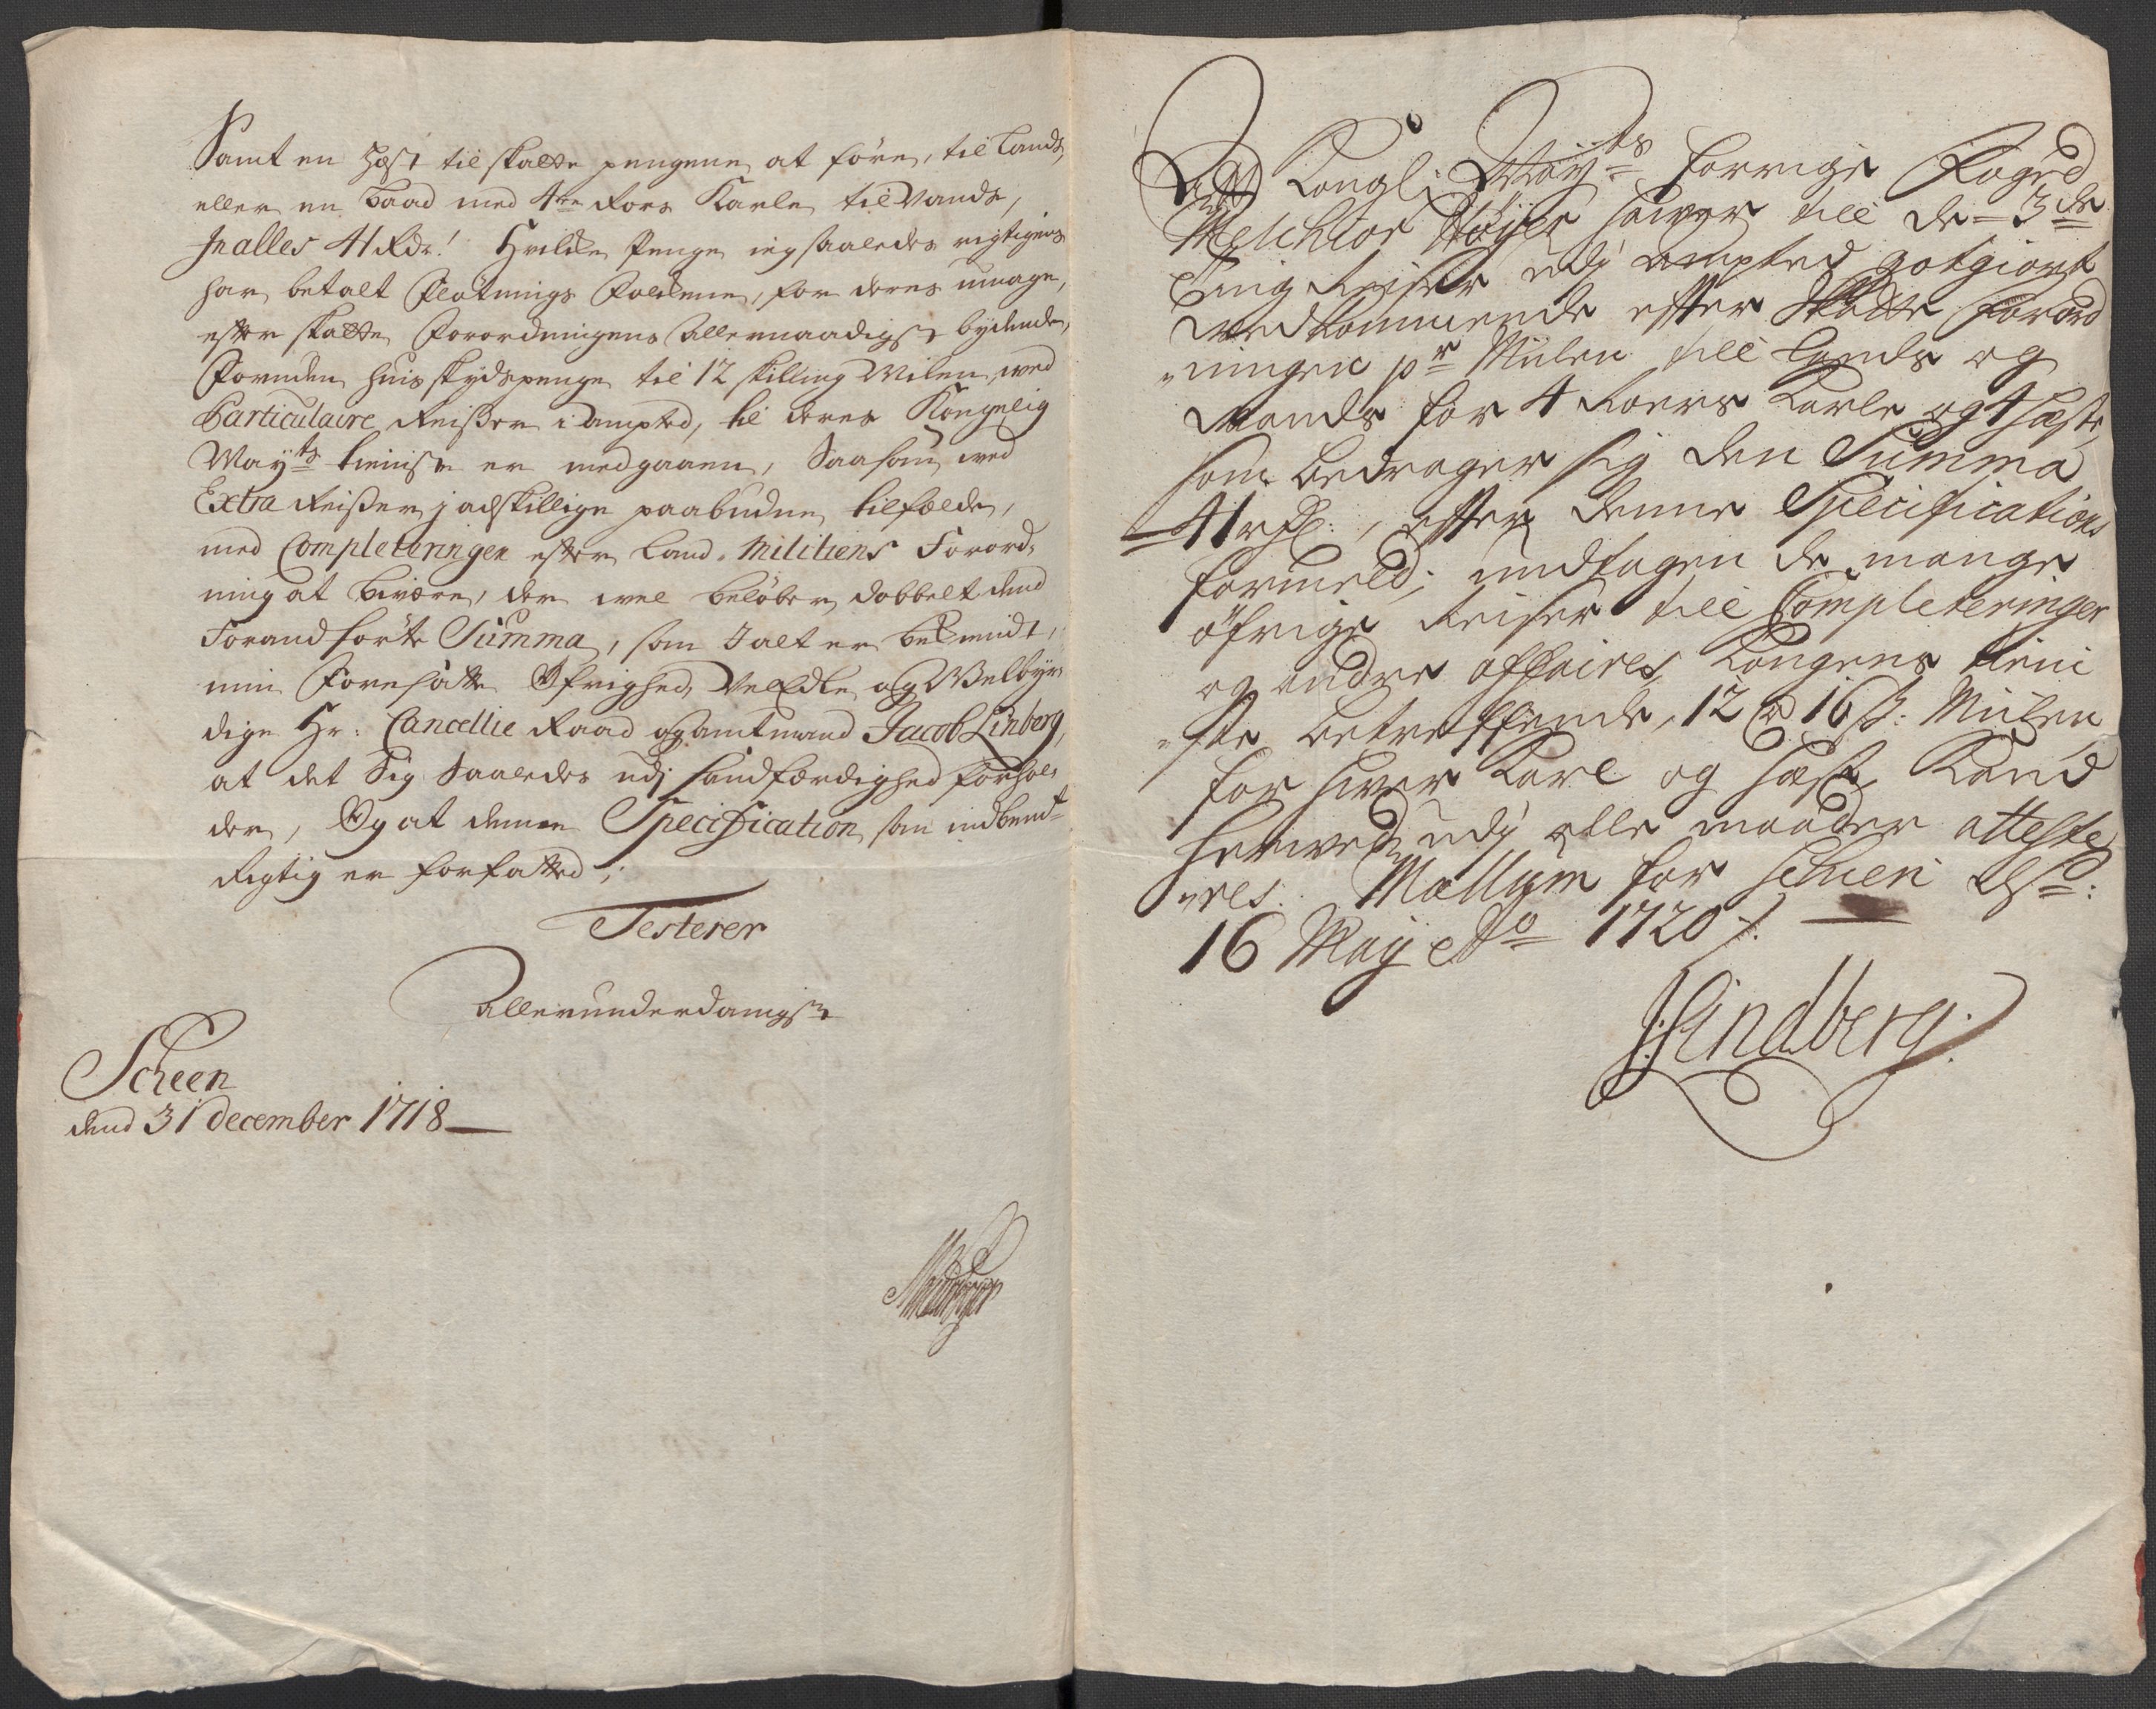 Samt en Hæst til skatte pengene at före, til Lands,
eller en Baad med 4re Rors Karle til Vands,
Jn alles 41 Rdr! Hvilke Penge ieg saaledes rigtigens
har betalt Fløtnings Folckene, for deres umage,
efter skatte Forordningens Allernaadigste bydende,
Foruden huis skydspenge til 12 skilling Milen, wed
Particulaire Reiser i Amptet, til deres Kongelig
Mayts tieniste er medgaaen, Saasom wed
Extra Reiser j adskillige paabudne tilfælde,
med Completeringen efter Land-Militiens Forord-
ning at bivære, der wel beløber dobbelt dend
Forandførte Summa, som Jalt er bekiendt,
min Foresatte Øfrighed, VelEdle og Welbyr-
dige Hr: Cancellie Raad og amtmand Jacob Linberg,
at det Sig Saaledes udj sandfærdighed forhol-
der, Og at denne Specification, som indbemt
Rigtig er forfatted;
Testerer
Allerunderdanigst
Scheen
dend 31 December 1718
At Kongl: Mayts forrige Foged
Melchior Høyer hawer till de 3de
Ting Reiser udj Ampted gotgiort
vedkommende efter Skatte Forord
ningen pr Miilen till Lands og
Vands for 4 Roers Karle og 1 hæst,
som bedrager sig den Summa
41 rdl:, efter denne Specifications
formeld; undtagen de mange
öfrige Reiser till Completeringer
og andre affaires Kongens tieni
ste betreffende, 12 à 16 s: Miilen
for hver Karl og hæst, Kand
herved udj alle maader atteste
res. Mællum for Schien d:
16 Maÿ Ao 1720
J: Lindberg: